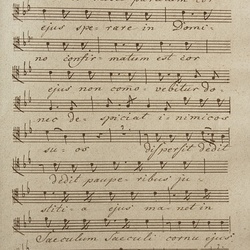 ejus spe - rare in Domi -
no confir - matum est cor
ejus non como - vebitur do -
nec de - spiciat i - nimicos
su - os dispersit dedit
dedit paupe - ribus ju -
stiti - a ejus ma - net in
Saeculum Saeculi cornu ejus